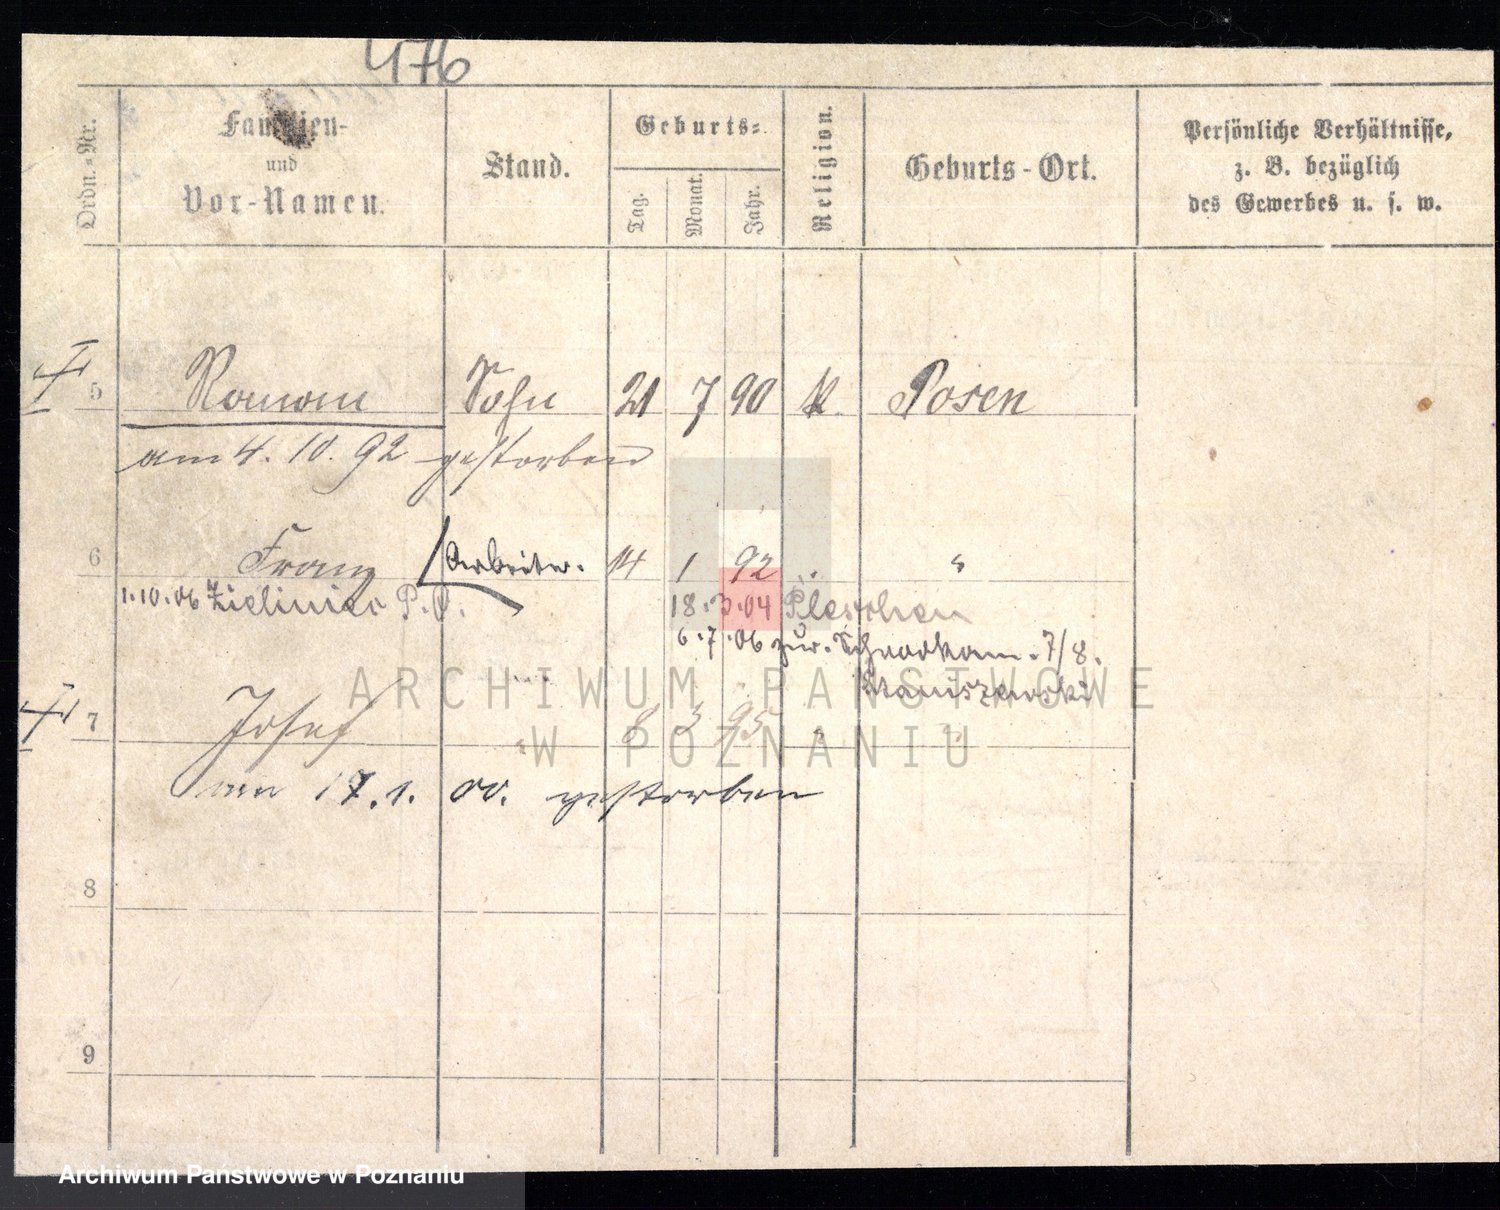 476
Ordn.-Nr.
Familien-
und
Vor-Namen.
Stand.
Geburts-
Tag.
Monat.
Jahr.
Religion.
Geburts-Ort.
Persönliche Verhältnisse,
z. B. bezüglich
des Gewerbes u. s. w.
5 Roman Sohn 21 7 90 k. Posen
am 4. 10. 92 gestorben
6 Franz Arbeiter. 14 1 92 "
1.10.06 Zieliniec P.O. 18.3.04 Pleschen
6.7.06 zur. 7/8.
Staniszewski
7 Josef " 8 3 95 " "
am 17.1.00. gestorben
8
9
ARCHIWUM PAŃSTWOWE
W POZNANIU
Archiwum Państwowe w Poznaniu